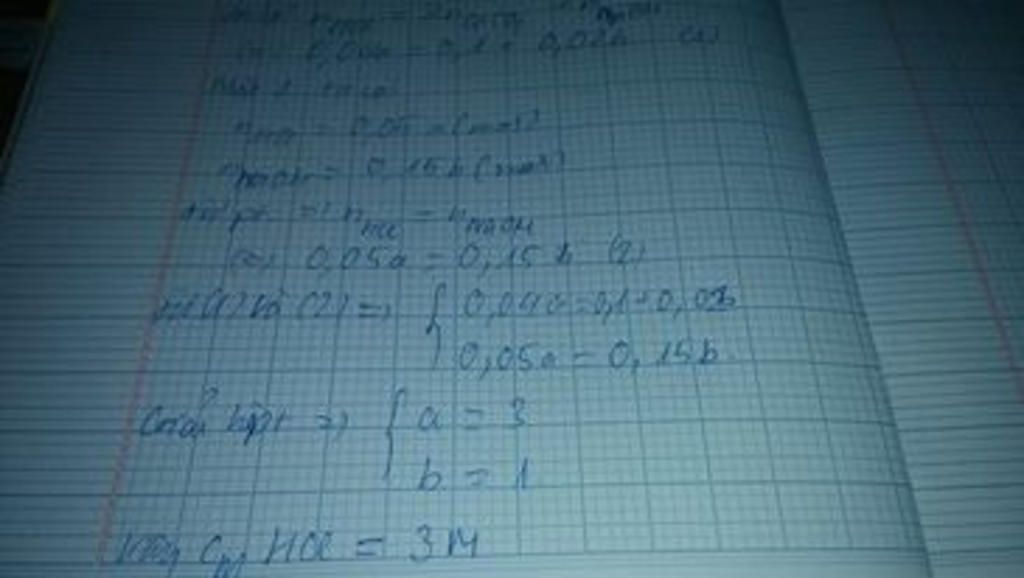 n_HCl = 2n_CaCO3 + n_NaOH
<=> 0,04a = 0,1 + 0,02b (1)
n_HCl = 0,05a (mol)
n_NaOH = 0,15b (mol)
=> n_HCl = n_NaOH
<=> 0,05a = 0,15b (2)
Từ (1) và (2) => { 0,04a = 0,1 + 0,02b
0,05a = 0,15b
Giải hệ pt => { a = 3
b = 1
Vậy C_M HCl = 3M